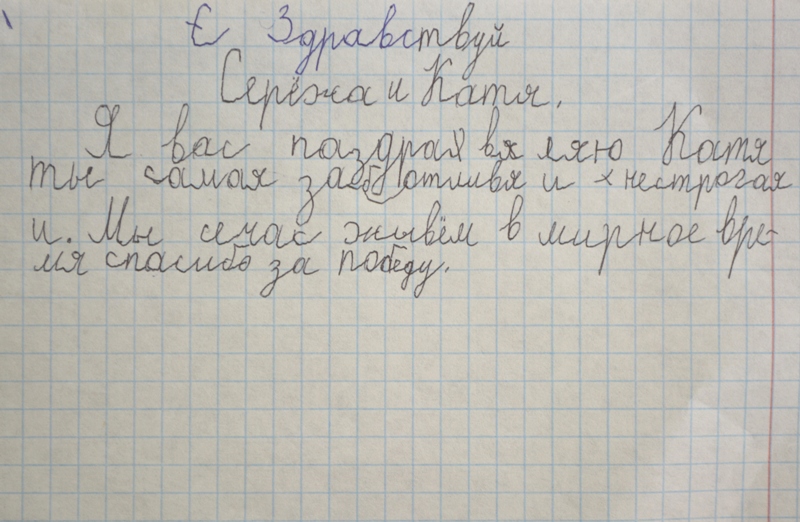 Є Здравствуй
Серёжа и Катя.
Я вас паздрав вяляю Катя
ты самая заботливя и нестрогая
и. Мы сечас живём в мирное вре-
мя спасибо за победу.